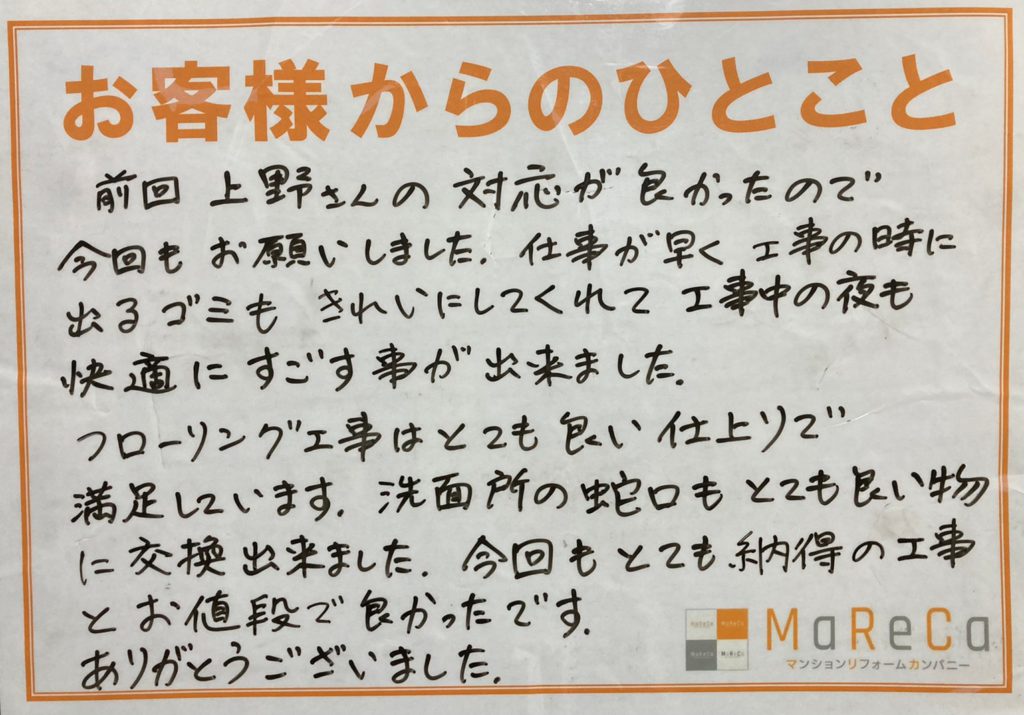 お客様からのひとこと
前回 上野さんの 対応が 良かったので
今回も お願いしました. 仕事が早く 工事の時に
出るゴミも きれいにしてくれて 工事中の夜も
快適に すごす事が 出来ました.
フローリング工事はとても 良い 仕上りで
満足しています. 洗面所の蛇口も とても良い物
に 交換出来ました. 今回も とても 納得の工事
と お値段で 良かったです.
ありがとうございました.
MaReCa
マンションリフォームカンパニー